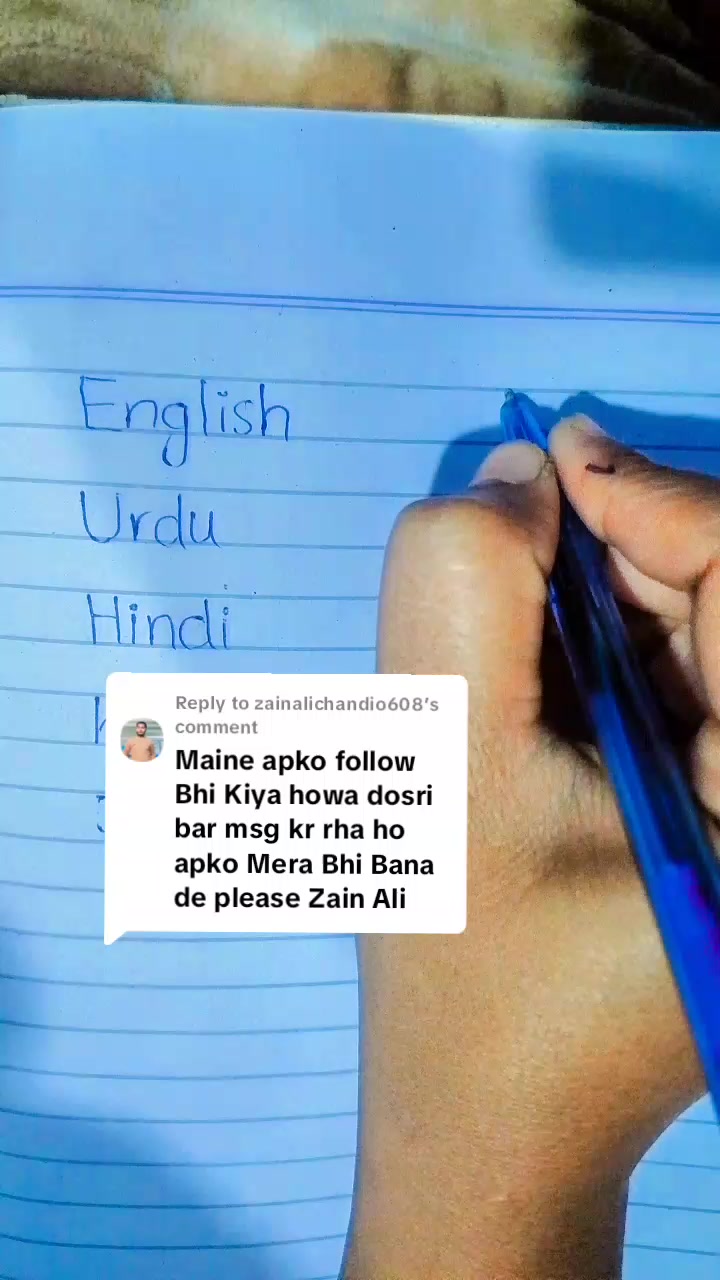 English
Urdu
Hindi
Reply to zainalichandio608's
comment
Maine apko follow
Bhi Kiya howa dosri
bar msg kr rha ho
apko Mera Bhi Bana
de please Zain Ali